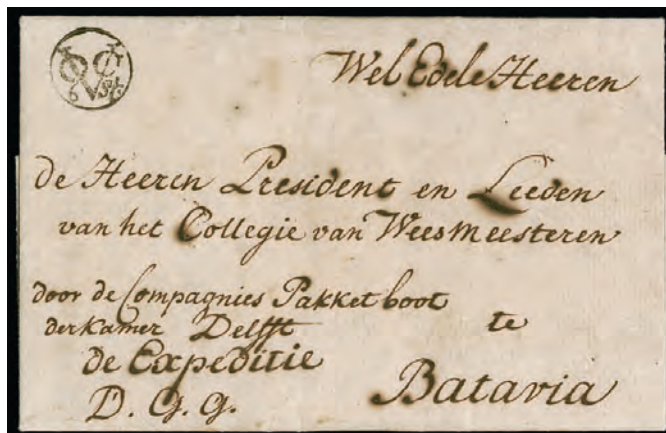 Wel Edele Heeren
de Heeren President en Leeden
van het Collegie van Weesmeesteren
door de Compagnies Pakket boot
der Kamer Delfft
de Expeditie
D. G. G.
te
Batavia